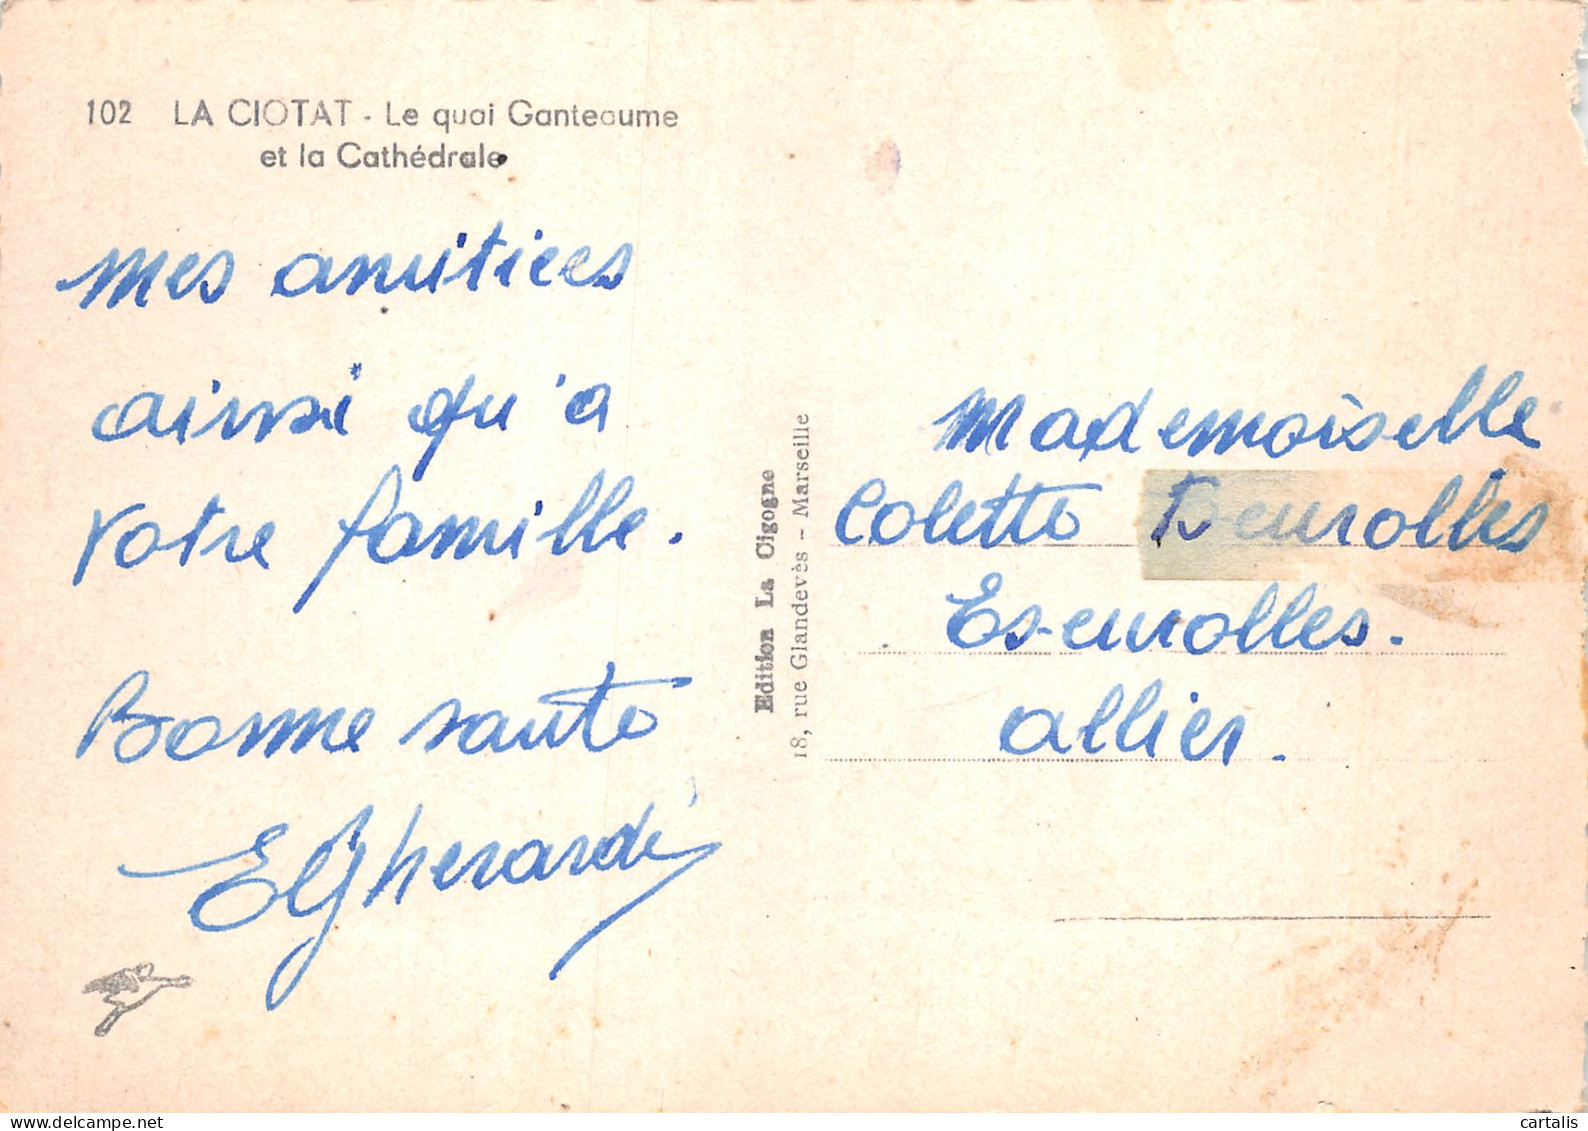 102 LA CIOTAT - Le quai Ganteaume
et la Cathédrale
mes amitiées
ainsi qu'a
votre famille.
Bonne santé
E Gherardi
Edition La Cigogne
18, rue Glandevès - Marseille
Mademoiselle
Colette
Escurolles.
allier.
delcampe.net
cartalis